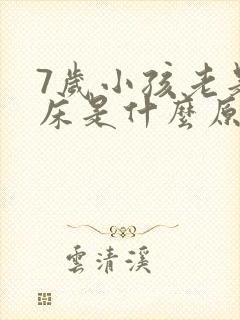 7歲小孩老是
床是什麼原
雲清溪